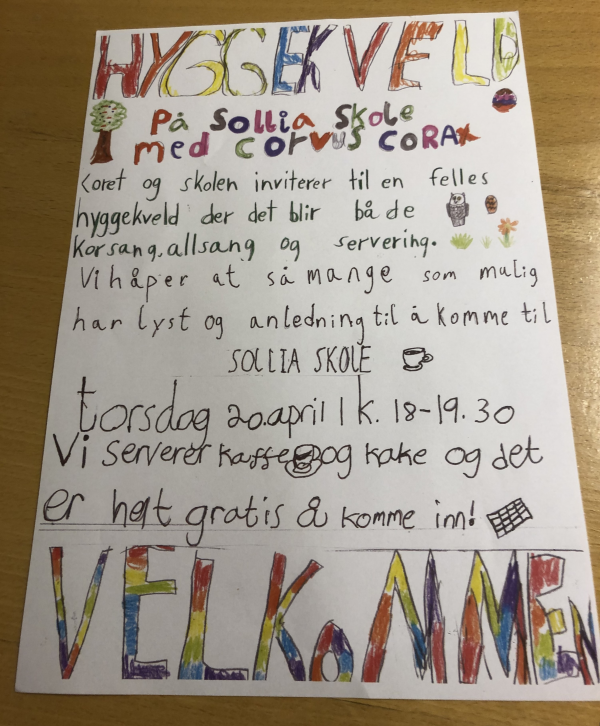 HYGGEKVELD
På Sollia Skole
med CORVUS CORAX
Coret og skolen inviterer til en felles
hyggekveld der det blir både
Korsang, allsang og servering.
Vi håper at så mange som mulig
har lyst og anledning til å komme til
SOLLIA SKOLE
torsdag 20.april | k. 18-19.30
Vi serverer kaffe og kake og det
er helt gratis å komme inn!
VELKOMMEN